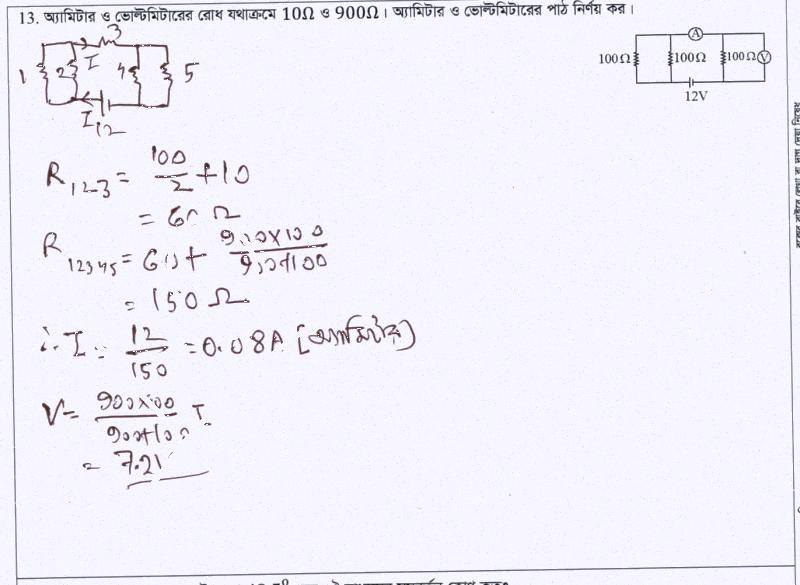 13. অ্যামিটার ও ভোল্টমিটারের রোধ যথাক্রমে 10Ω ও 900Ω। অ্যামিটার ও ভোল্টমিটারের পাঠ নির্ণয় কর।
A
100Ω 100Ω 100Ω V
12V
3
1 2 I 4 5
I 12
R123 = 100/2 + 10
= 60 Ω
R12345 = 60 + 900×100/900+100
= 150 Ω
∴ I = 12/150 = 0.08A [অ্যামিটার]
V = 900×100/900+100 I
= 7.2V